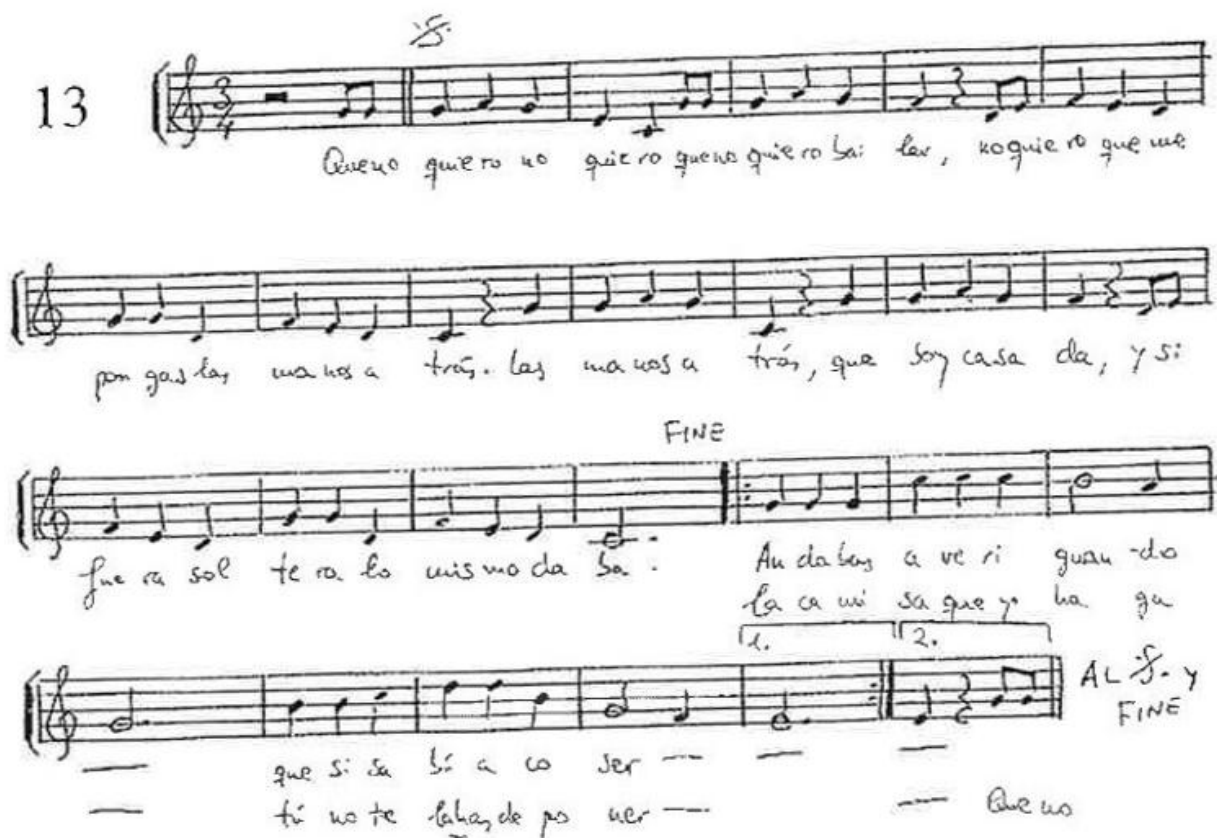 13
3/4
Que no quie ro no quie ro que no quie ro bai lar, no quie ro que me
pon gas las ma nos a trás. las ma nos a trás, que soy casa da, y si
FINE
fue ra sol te ra lo mis mo da ba.
An da bas a ve ri guan-do
la ca mi sa que yo ha ga
1. 2.
AL 𝄋. y
FINE
que si sa bí a co ser
tú no te la has de po ner
Que no